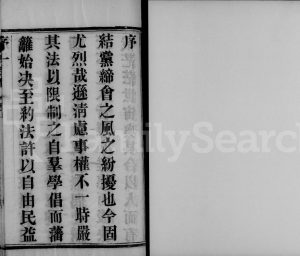 序
結黨締會之風之紛擾也今固
尤烈哉遜清慮事權不一時嚴
其法以限制之自羣學倡而藩
籬始決至約法許以自由民益
序 一
FamilySearch